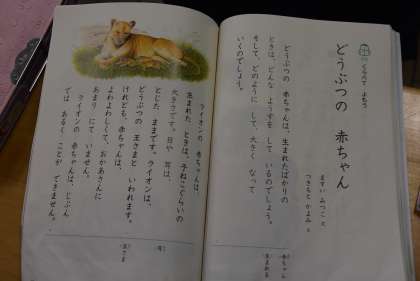 くらべて よもう
どうぶつの 赤ちゃん
ますい みつこ 文
どうぶつの 赤ちゃんは、生まれたばかりの
ときは、どんな ようすを して いるのでしょう。
そして、どのように して、大きく なって
いくのでしょう。
赤ちゃん
生まれる
ライオンの 赤ちゃんは、
生まれた ときは、子ねこぐらいの
大きさです。目や 耳は、
とじた ままです。ライオンは、
どうぶつの 王さまと いわれます。
けれども、赤ちゃんは、
よわよわしくて、おかあさんに
あまり にて いません。
ライオンの 赤ちゃんは、じぶん
では あるく ことが できません。
耳
王さま